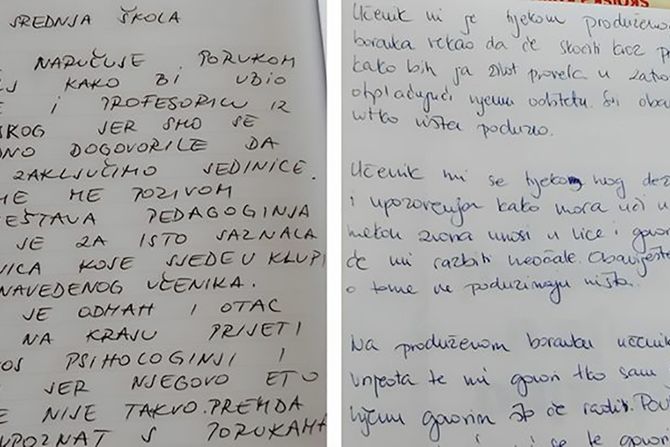 SREDNJA ŠKOLA
NARUČUJE PORUKOM
KAKO BI UBIO
E I PROFESORICU IZ
SKOG JER SMO SE
DNO DOGOVORILE DA
ZAKLJUČIMO JEDINICE.
ME ME POZIVOM
JEŠTAVA PEDAGOGINJA
JE ZA ISTO SAZNALA
NICA KOJE SJEDE U KLUPI
NAVEDENOG UČENIKA.
JE ODMAH I OTAC
NA KRAJU PRIJETI
PSIHOLOGINJI I
JER NJEGOVO ETO
E NIJE TAKVO. PREMDA
UPOZNAT S PORUKAMA
Učenik mi je tijekom produženo
boravka rekao da će skočiti kroz pr
kako bih ja život provela u zatvo
otplaćujući njemu odštetu. Svi oba
nitko ništa poduzeo.
Učenik mi se tijekom mog dež
i upozorenja kako mora ući u u
metou zvona unosi u lice i govori
će mi razbiti neočale. Obavješte
o tome ne poduzimaju ništa.
Na produženom boravku učenik
te mi govori tko sam
njemu govorim što će raditi.
i se te govor